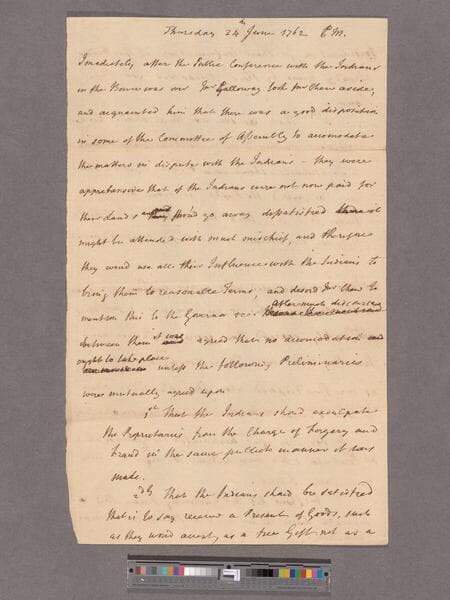 Thursday 24th June 1762 P.M.
Imediately after the Public Conference with the Indians
in the Room was over Mr Galloway took Mr Chew aside,
and acquainted him that there was a good disposition
in some of the Committee of Assembly to accomodate
the matters in dispute with the Indians – they were
apprehensive that if the Indians were not now paid for
their Lands & shou'd go away dissatisfied it
might be attended with much mischief, and therefore
they woud use all their Influence with the Indians to
bring them to reasonable Terms, and desired Mr Chew to
mention this to the Governor &c.
after much discourse
between them it was agreed that no accomodation
ought to take place
unless the following Preliminaries
were mutually agreed upon
1st That the Indians shoud exculpate
the Proprietaries from the Charge of Forgery and
fraud in the same publick manner it was
made.
2dly That the Indians shoud be satisfied
that is to say receive a Present of Goods, such
as they woud accept, as a free Gift not as a